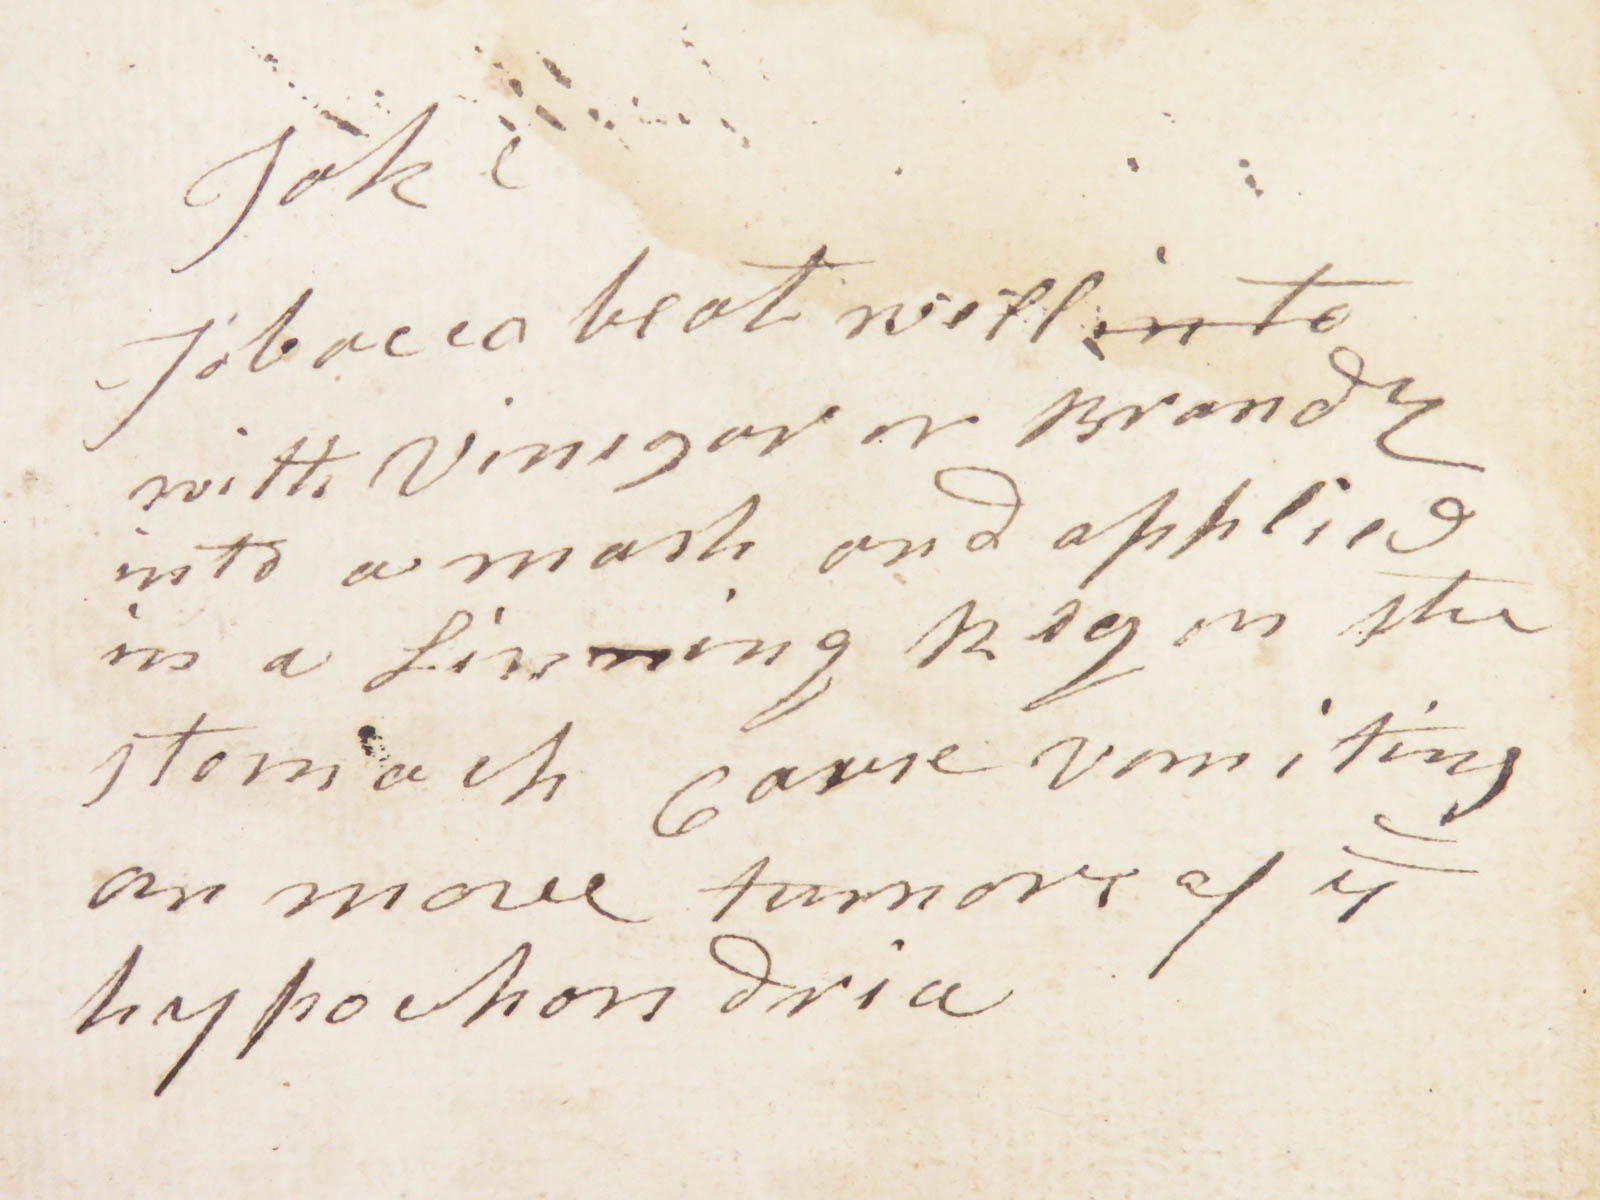 Take
Tobacco beat well into
with Vinegar or Brandy
into a mash and applied
in a Linning Rag on the
stomach Cause vomiting
an move tumors of ye
hypochondria